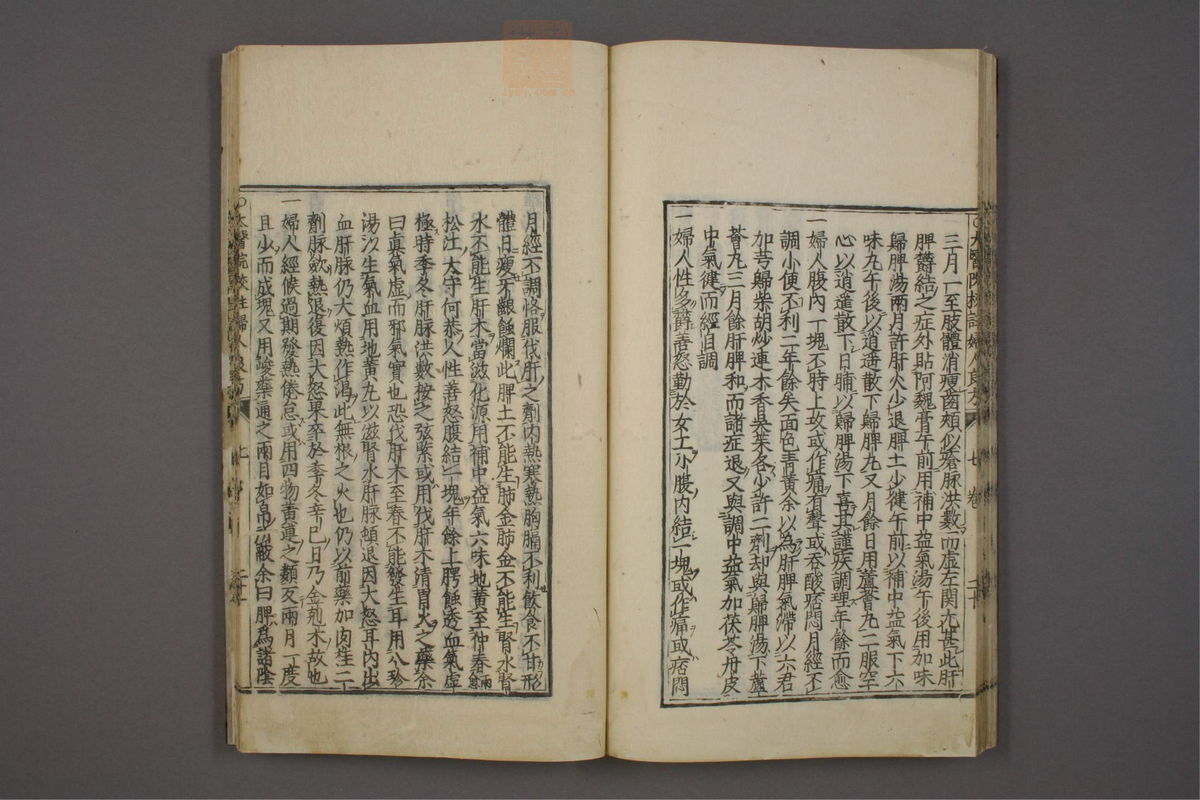 三月一至肢體消瘦齒頰似瘡脉洪數而虛左関尤甚此肝
脾欝結之症外貼阿魏膏午前用補中益氣湯午後用加味
歸脾湯兩月許肝火少退脾土少健午前以補中益氣下六
味丸午後以逍遥散下歸脾丸又月餘日用蘆薈丸二服空
心以逍遥散下日晡以歸脾湯下喜其謹疾調理年餘而愈
一婦人腹內一塊不時上攻或作痛有聲或吞酸痞悶月經不
調小便不利二年餘矣面色青黃余以為肝脾氣滯以六君
加芎歸柴胡炒連木香吳茱各少許二劑却與歸脾湯下蘆
薈丸三月餘肝脾和而諸症退又與調中益氣加茯苓丹皮
中氣健而經自調
一婦人性多欝善怒勤於女工小腹內結一塊或作痛或痞悶
七卷
月經不調恪服伐肝之劑內熱寒熱胸膈不利飲食不甘形
體日瘦牙齦蝕爛此脾土不能生肺金肺金不能生腎水腎
水不能生肝木當滋化源用補中益氣六味地黃至仲春而愈
松江太守何恭人性善怒腹結一塊年餘上腭蝕透血氣虛
極時季冬肝脉洪數按之弦緊或用伐肝木清胃火之藥余
曰眞氣虛而邪氣實也恐伐肝木至春不能發生耳用八珍
湯以生氣血用地黃丸以滋腎水肝脉頓退因大怒耳內出
血肝脉仍大煩熱作渴此無根之火也仍以前藥加肉桂二
劑脉歛熱退復因大怒果卒於季冬辛巳日乃金剋木故也
一婦人經候過期發熱倦怠或用四物黃連之類反兩月一度
且少而成塊又用峻藥通之兩目如帛所蔽余曰脾為諸陰
○太醫院校註婦人良方
七